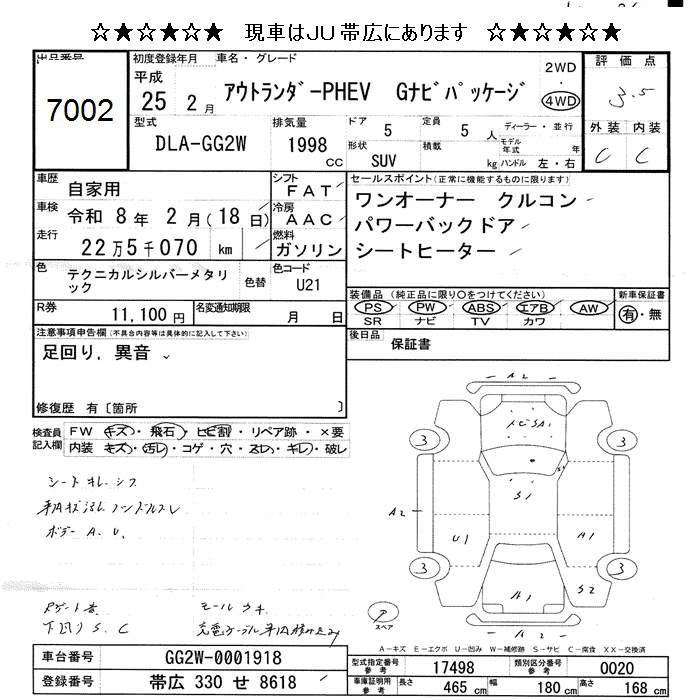 ☆★☆★☆★☆ 現車はJU帯広にあります ☆★☆★☆★☆
出品番号
7002
初度登録年月 車名・グレード
平成
25 2月
アウトランダーPHEV Gナビパッケージ
2WD
・
4WD
評価点
3.5
外装 内装
C C
型式
DLA-GG2W
排気量
1998
cc
ドア
5
定員
5 人
形状
SUV
積載
kg
ディーラー・並行
モデル
年式 年
ハンドル 左・右
車歴
自家用
車検
令和 8年 2月(18日)
走行
22万5千070 km
シフト
FAT
冷房
AAC
燃料
ガソリン
セールスポイント(正常に機能するものに限ります)
ワンオーナー クルコン
パワーバックドア
シートヒーター
色
テクニカルシルバーメタリック
色替
色コード
U21
装備品(純正品に限り○をつけてください)
PS PW ABS エアB AW
SR ナビ TV カワ
新車保証書
有・無
R券
11,100円
名変通知期限
月 日
後日品
保証書
注意事項申告欄(不具合内容等は具体的に記入して下さい)
足回り,異音
修復歴 有〔箇所 〕
検査員
記入欄
FW キズ・飛石・ヒビ割・リペア跡・×要
内装 キズ・汚レ・コゲ・穴・スレ・キレ・破レ
シート
ボデー A.U.
下回りS.C
A2
S1
U1
A1
A2
A1
S2
A2
3
3
3
3
スペア
A-キズ E-エクボ U-凹み W-補修跡 S-サビ C-腐食 XX-交換済
車台番号
GG2W-0001918
登録番号
帯広 330 せ 8618
型式指定番号
参考
17498
類別区分番号
参考
0020
車庫証明用
参考
長さ 465 cm 幅 180 cm 高さ 168 cm